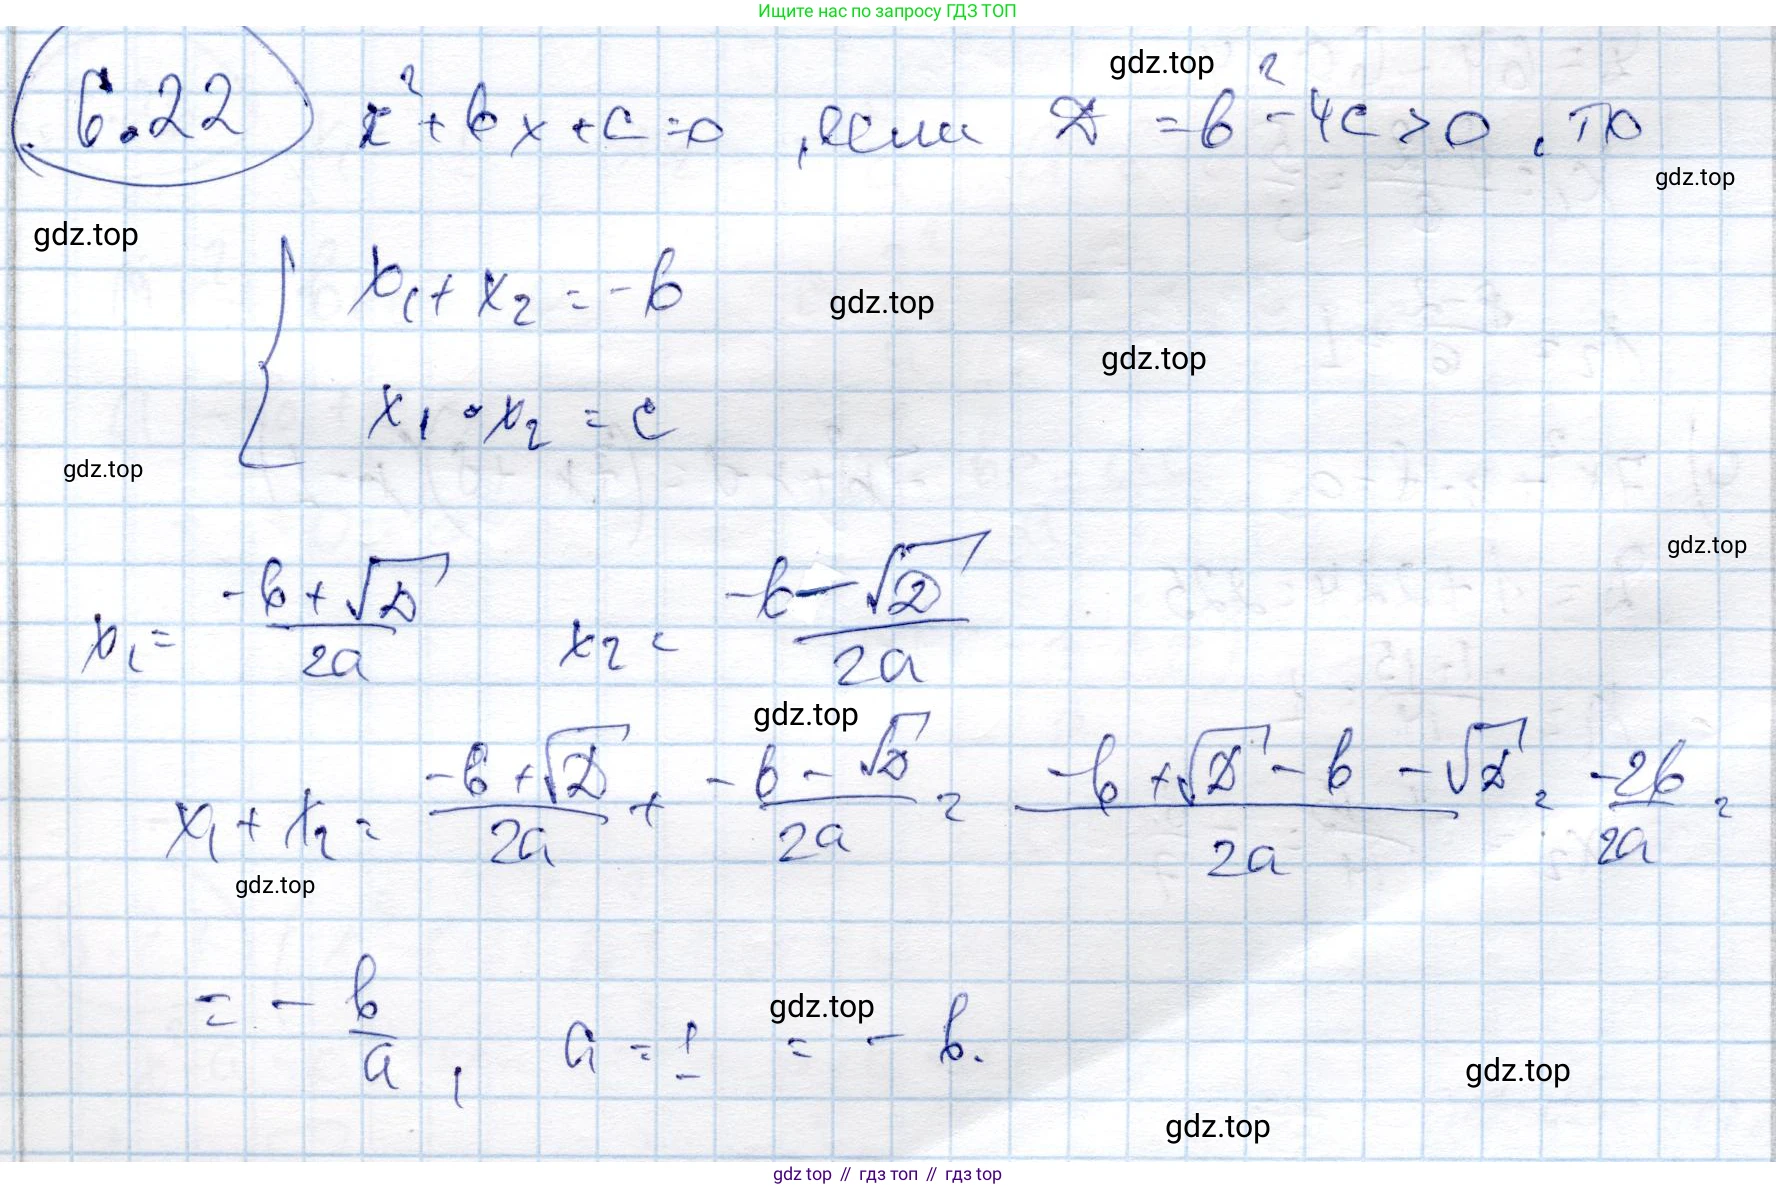 Ищите нас по запросу ГДЗ ТОП
6.22 x² + bx + c = 0, если D = b² - 4c > 0, то
gdz.top
gdz.top
gdz.top
x₁ + x₂ = -b
gdz.top
gdz.top
x₁ · x₂ = c
gdz.top
gdz.top
x₁ = (-b + √D)/2a x₂ = (-b - √D)/2a
gdz.top
x₁ + x₂ = (-b + √D)/2a + (-b - √D)/2a = (-b + √D - b - √D)/2a = -2b/2a =
gdz.top
= - b/a, a = 1 = - b.
gdz.top
gdz.top
gdz.top
gdz top // гдз топ // гдз top